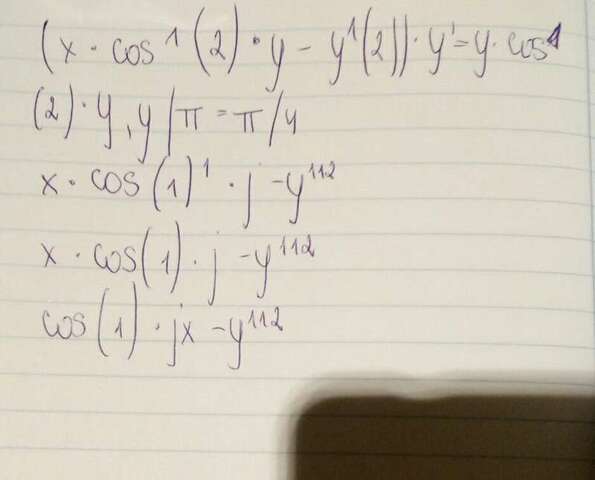 (x · cos¹(2) · y - y¹(2)) · y' = y · cos¹
(2) · y, y/π = π/4
x · cos(1)¹ · j - y¹¹²
x · cos(1) · j - y¹¹²
cos(1) · jx - y¹¹²